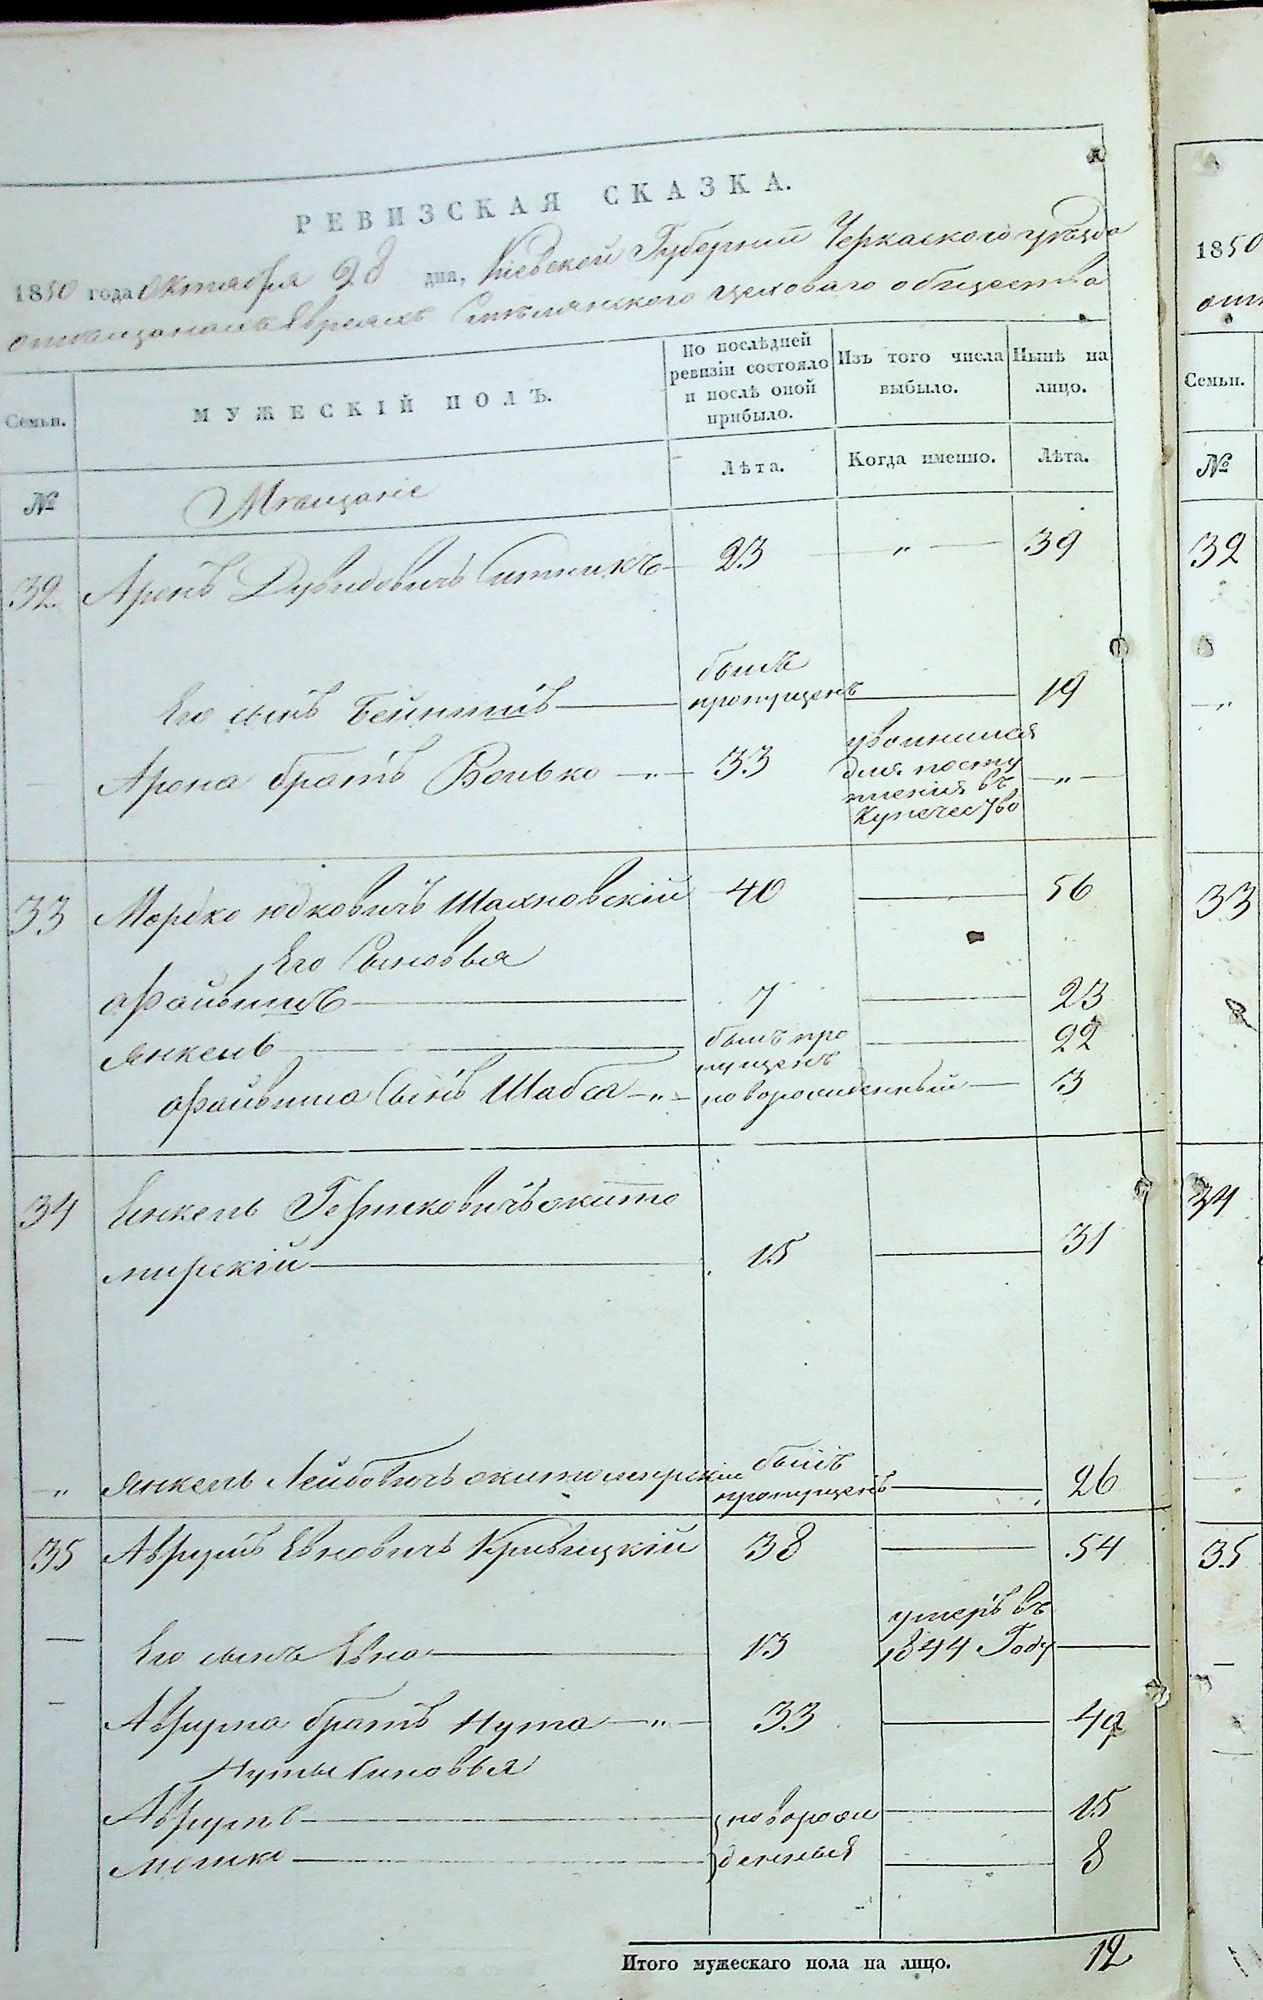 РЕВИЗСКАЯ СКАЗКА.
1850 года Октября 28 дня, Кіевской Губерніи Черкаского уѣзда
о мещанахъ Евреяхъ Смѣлянского цеховаго общества
Семьи.
МУЖЕСКІЙ ПОЛЪ.
По послѣдней ревизіи состояло и послѣ оной прибыло.
Изъ того числа выбыло.
Нынѣ на лицо.
№
Мѣщаніе
Лѣта.
Когда именно.
Лѣта.
32 Аронъ Дувидовичъ Ситникъ 23 — „ — 39
Его сынъ Бейнишъ былъ пропущенъ 19
Арона братъ Волько — „ — 33 уволнился для поступленія въ Купечество — „ —
33 Мордко Юдковичъ Шахновскій 40 56
Его Сыновья
Файвишъ 7 23
Янкель былъ пропущенъ 22
Файвиша Сынъ Шабса — „ — новорожденный 3
34 Янкель Гершковичъ Жито
мирскій 15 31
„ Янкель Лейбовичъ Житомирскій былъ пропущенъ 26
35 Аврумъ Евновичъ Кривицкій 38 54
Его сынъ Евно 13 умеръ въ 1844 Году
Аврума братъ Нута — „ — 33 49
Нуты Синовья
Аврумъ новорож 15
Мошко денныя 8
Итого мужескаго пола на лицо. 12
1850
Семьи.
№
32
„
33
34
35